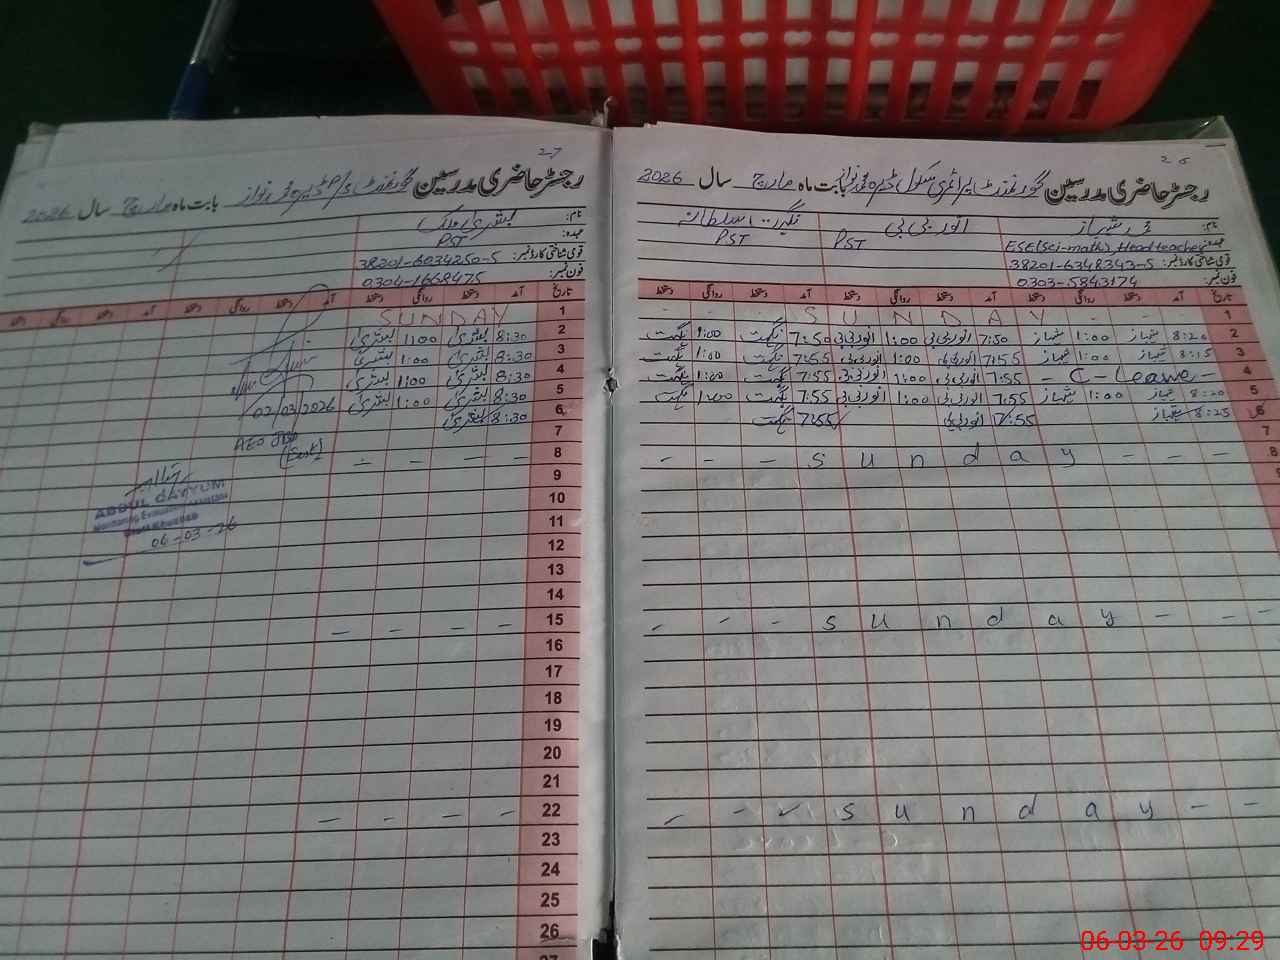 26
رجسٹر حاضری مدرسین گورنمنٹ پرائمری سکول ڈیرہ محمد نواز بابت ماہ مارچ سال 2026
نام: محمد شہباز انور بی بی نگہت سلطانہ
عہدہ: ESE(Sci-math), Headteacher PST PST
قومی شناختی کارڈ نمبر: 38201-6348343-5
فون نمبر: 0303-5843174
تاریخ آمد دستخط روانگی دستخط آمد دستخط روانگی دستخط آمد دستخط روانگی دستخط
1 S U N D A Y
2 8:20 شہباز 1:00 شہباز 7:50 انور بی بی 1:00 انور بی بی 7:50 نگہت 1:00 نگہت
3 8:15 شہباز 1:00 شہباز 7:55 انور بی بی 1:00 انور بی بی 7:55 نگہت 1:00 نگہت
4 - C - Leave - 7:55 انور بی بی 1:00 انور بی بی 7:55 نگہت 1:00 نگہت
5 8:20 شہباز 1:00 شہباز 7:55 انور بی بی 1:00 انور بی بی 7:55 نگہت 1:00 نگہت
6 8:25 شہباز 7:55 انور بی بی 7:55 نگہت
7
8 - - - s u n d a y - -
- - - s u n d a y - - -
- - - s u n d a y - - -
27
رجسٹر حاضری مدرسین گورنمنٹ بابت ماہ مارچ سال 2026
نام: بشریٰ ملک
عہدہ: PST
قومی شناختی کارڈ نمبر: 38201-6034250-5
فون نمبر: 0304-1668475
تاریخ آمد دستخط روانگی دستخط آمد دستخط روانگی دستخط
1 SUNDAY
2 8:30 بشریٰ 1:00 بشریٰ
3 8:30 بشریٰ 1:00 بشریٰ
4 8:30 بشریٰ 1:00 بشریٰ
5 8:30 بشریٰ 1:00 بشریٰ
6 8:30 بشریٰ
7
8 - - - -
9
10
11
12
13
14
15 - - - -
16
17
18
19
20
21
22 - - - -
23
24
25
26
27
02/03/2026
AEO
ABDUL QAYYUM
06-03-26
06-03-26 09:29